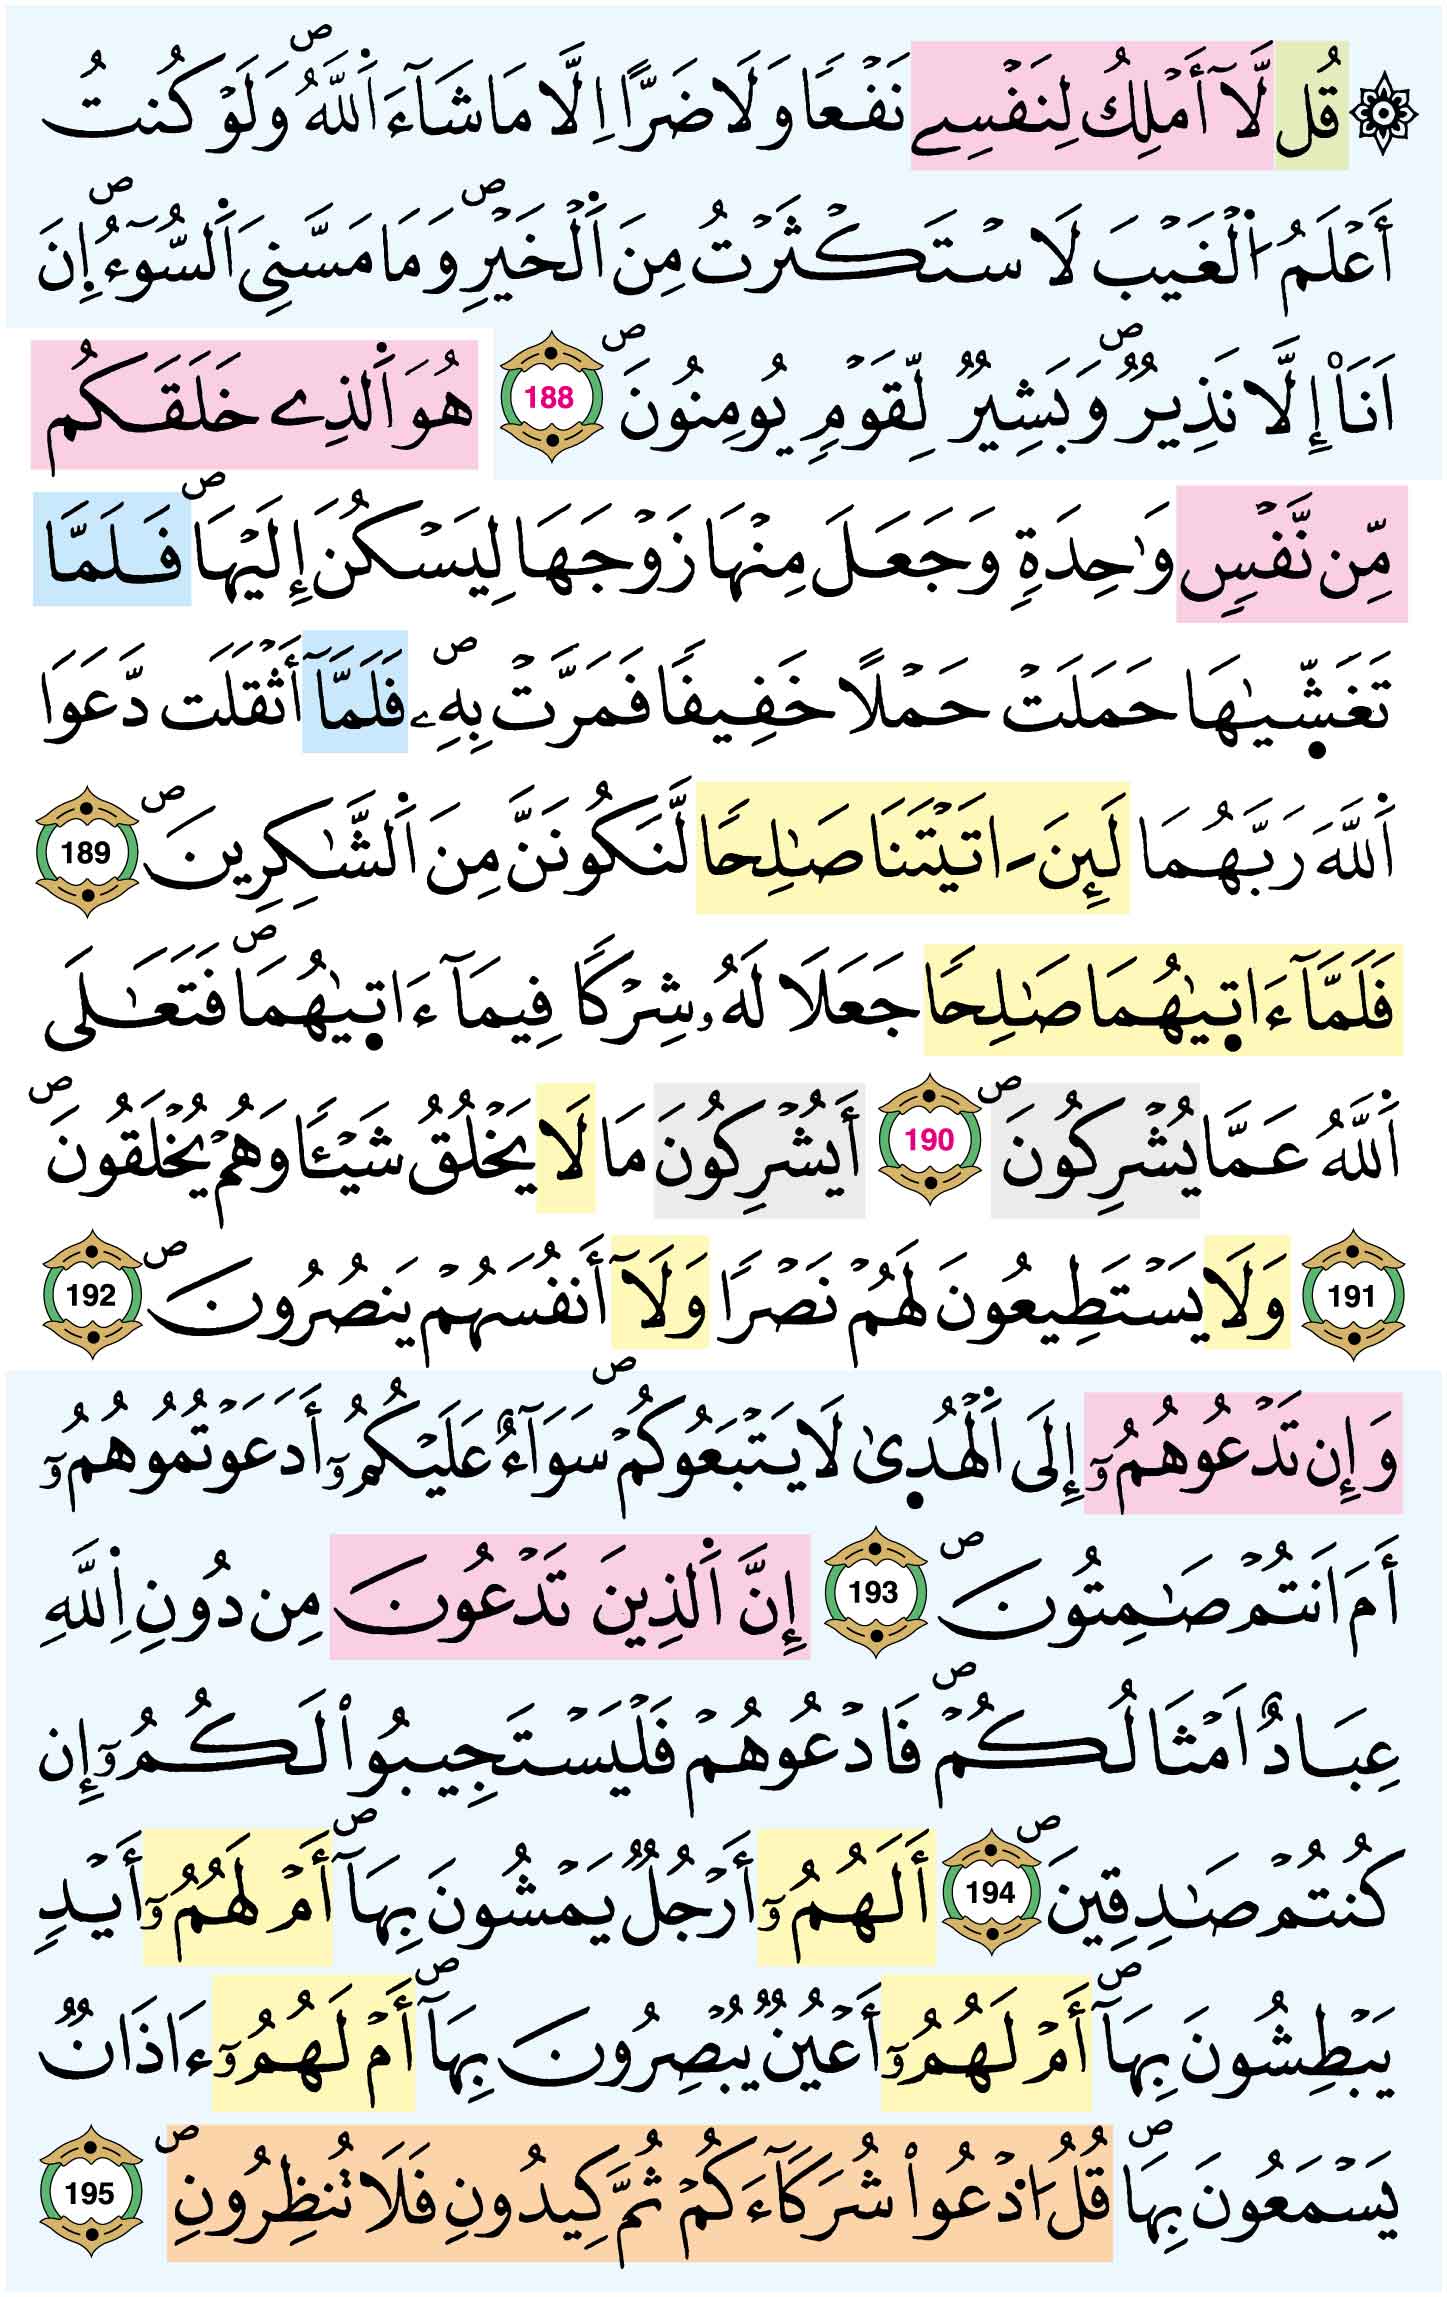 ۞ قُل لَّآ أَمۡلِكُ لِنَفۡسِے نَفۡعٗا وَلَا ضَرًّا اِلَّا مَا شَآءَ اَ۬للَّهُۖ وَلَوۡ كُنتُ
أَعۡلَمُ اُ۬لۡغَيۡبَ لَاسۡتَكۡثَرۡتُ مِنَ اَ۬لۡخَيۡرِۖ وَمَا مَسَّنِيَ اَ۬لسُّوٓءُۖ إِنَ
اَنَا۠ إِلَّا نَذِيرٞۖ وَبَشِيرٞ لِّقَوۡمٖ يُومِنُونَۖ 188 هُوَ اَ۬لذِے خَلَقَكُم
مِّن نَّفۡسٖ وَٰحِدَةٖ وَجَعَلَ مِنۡهَا زَوۡجَهَا لِيَسۡكُنَ إِلَيۡهَاۖ فَلَمَّا
تَغَشّ۪ىٰهَا حَمَلَتۡ حَمۡلًا خَفِيفٗا فَمَرَّتۡ بِهِۦۖ فَلَمَّآ أَثۡقَلَت دَّعَوَا
اَ۬للَّهَ رَبَّهُمَا لَئِنَ اٰتَيۡتَنَا صَٰلِحٗا لَّنَكُونَنَّ مِنَ اَ۬لشَّٰكِرِينَۖ 189
فَلَمَّآ ءَات۪ىٰهُمَا صَٰلِحٗا جَعَلَا لَهُۥ شِرۡكٗا فِيمَآ ءَات۪ىٰهُمَاۖ فَتَعَٰلَى
اَ۬للَّهُ عَمَّا يُشۡرِكُونَۖ 190 أَيُشۡرِكُونَ مَا لَا يَخۡلُقُ شَيۡـٔٗا وَهُمۡ يُخۡلَقُونَۖ
191 وَلَا يَسۡتَطِيعُونَ لَهُمۡ نَصۡرٗا وَلَآ أَنفُسَهُمۡ يَنصُرُونَۖ 192
وَإِن تَدۡعُوهُمُۥٓ إِلَى اَ۬لۡهُد۪ىٰ لَا يَتۡبَعُوكُمۡۖ سَوَآءٌ عَلَيۡكُمُۥٓ أَدَعَوۡتُمُوهُمُۥٓ
أَمَ اَنتُمۡ صَٰمِتُونَۖ 193 إِنَّ اَ۬لذِينَ تَدۡعُونَ مِن دُونِ اِ۬للَّهِ
عِبَادٌ اَمۡثَالُكُمۡۖ فَادۡعُوهُمۡ فَلۡيَسۡتَجِيبُواْ لَكُمُۥٓ إِن
كُنتُمۡ صَٰدِقِينَۖ 194 أَلَهُمُۥٓ أَرۡجُلٞ يَمۡشُونَ بِهَآۖ أَمۡ لَهُمُۥٓ أَيۡدٖ
يَبۡطِشُونَ بِهَآۖ أَمۡ لَهُمُۥٓ أَعۡيُنٞ يُبۡصِرُونَ بِهَآۖ أَمۡ لَهُمُۥٓ ءَاذَانٞ
يَسۡمَعُونَ بِهَاۖ قُلُ اُ۟دۡعُواْ شُرَكَآءَكُمۡ ثُمَّ كِيدُونِ فَلَا تُنظِرُونِۖ 195